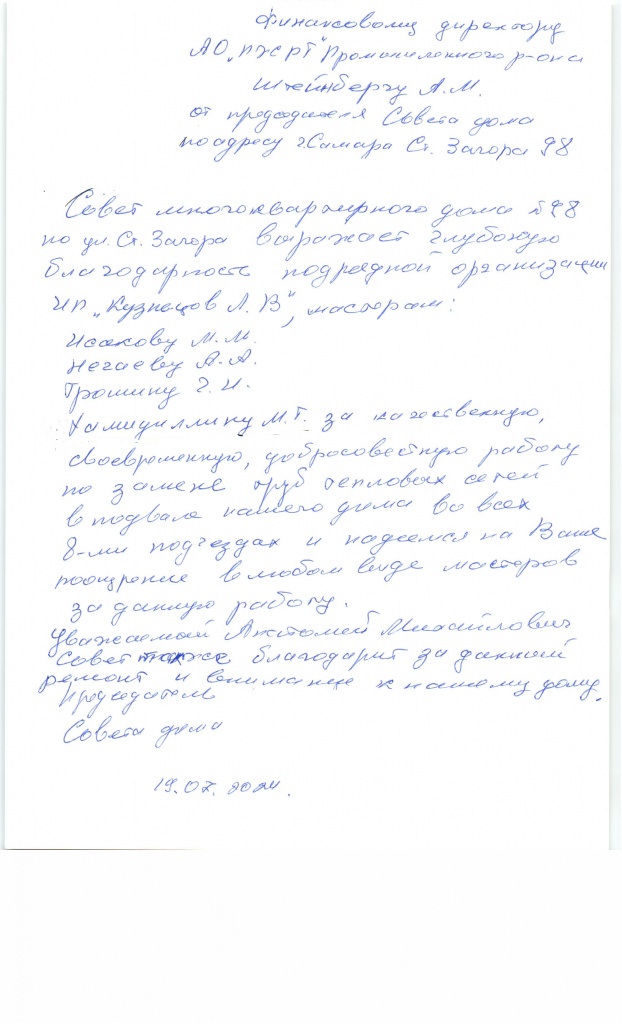 Финансовому директору
АО „ПЖРТ" Промышленного р-она
Штейнбергу А.М.
от председателя Совета дома
по адресу г.Самара Ст. Загора 98
Совет многоквартирного дома №98
по ул. Ст. Загора выражает глубокую
благодарность подрядной организации
ИП „Кузнецов Л.В", мастерам:
Исакову М.М.
Негаеву А.А.
Грошину Г.И.
Хамидуллину М.Г. за качественную,
своевременную, добросовестную работу
по замене труб тепловых сетей
в подвале нашего дома во всех
8-ми подъездах и надеемся на Ваше
поощрение в любом виде мастеров
за данную работу.
Уважаемый Анатолий Михайлович
Совет также благодарит за данный
ремонт и внимание к нашему дому.
Председатель
Совета дома
19.07.2024.